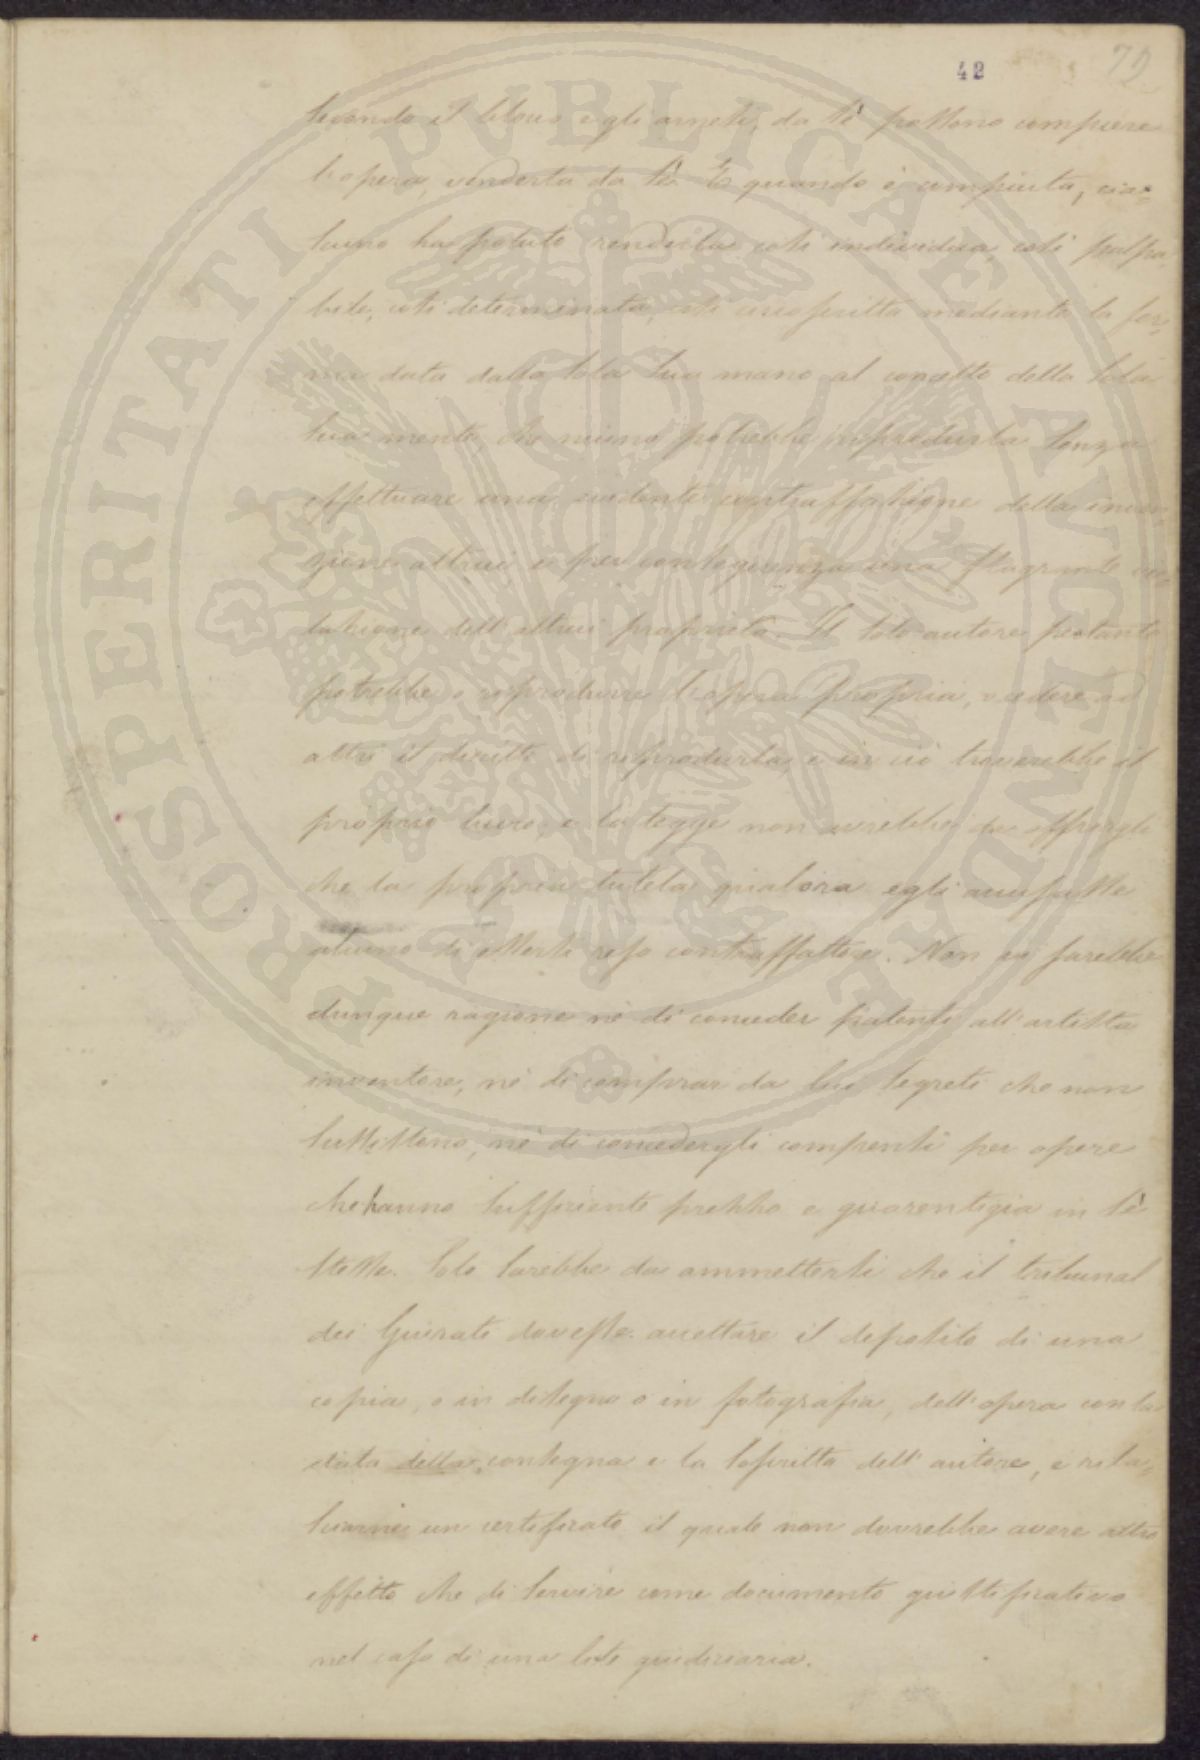 42
79
secondo il blocco e gli arnesi, da sè possono compiere
l'opera, venderla da sè. E quando è compiuta, cia=
scuno ha potuto renderla così individua, così palpa
bile, così determinata, così circoscritta mediante la for=
ma data dalla sola sua mano al concetto della sola
sua mente, che niuno potrebbe riprodurla senza
effettuare una evidente contraffazione della inven=
zione altrui, e per conseguenza una flagrante vio=
lazione dell'altrui proprietà. Il solo autore pertanto
potrebbe o riprodurre l'opera propria, o cedere ad
altri il diritto di riprodurla, e in ciò troverebbe il
proprio lucro, e la legge non avrebbe da offrirgli
che la propria tutela qualora egli accusasse
alcuno di essersi reso contraffattore. Non vi sarebbe
dunque ragione nè di conceder patenti all'artista
inventore, nè di comprar da lui segreti che non
sussistono, nè di concedergli compensi per opere
che hanno sufficiente prezzo e guarentigia in sè
stesse. Solo sarebbe da ammettersi che il tribunal
dei Giurati dovesse accettare il deposito di una
copia, o in disegno o in fotografia, dell'opera con la
data della consegna e la soscritta dell'autore, e rila=
sciarne un certificato il quale non dovrebbe avere altro
effetto che di servire come documento giustificativo
nel caso di una lite giudiziaria.
PROSPERITATI PVBLICAE AVGENDAE